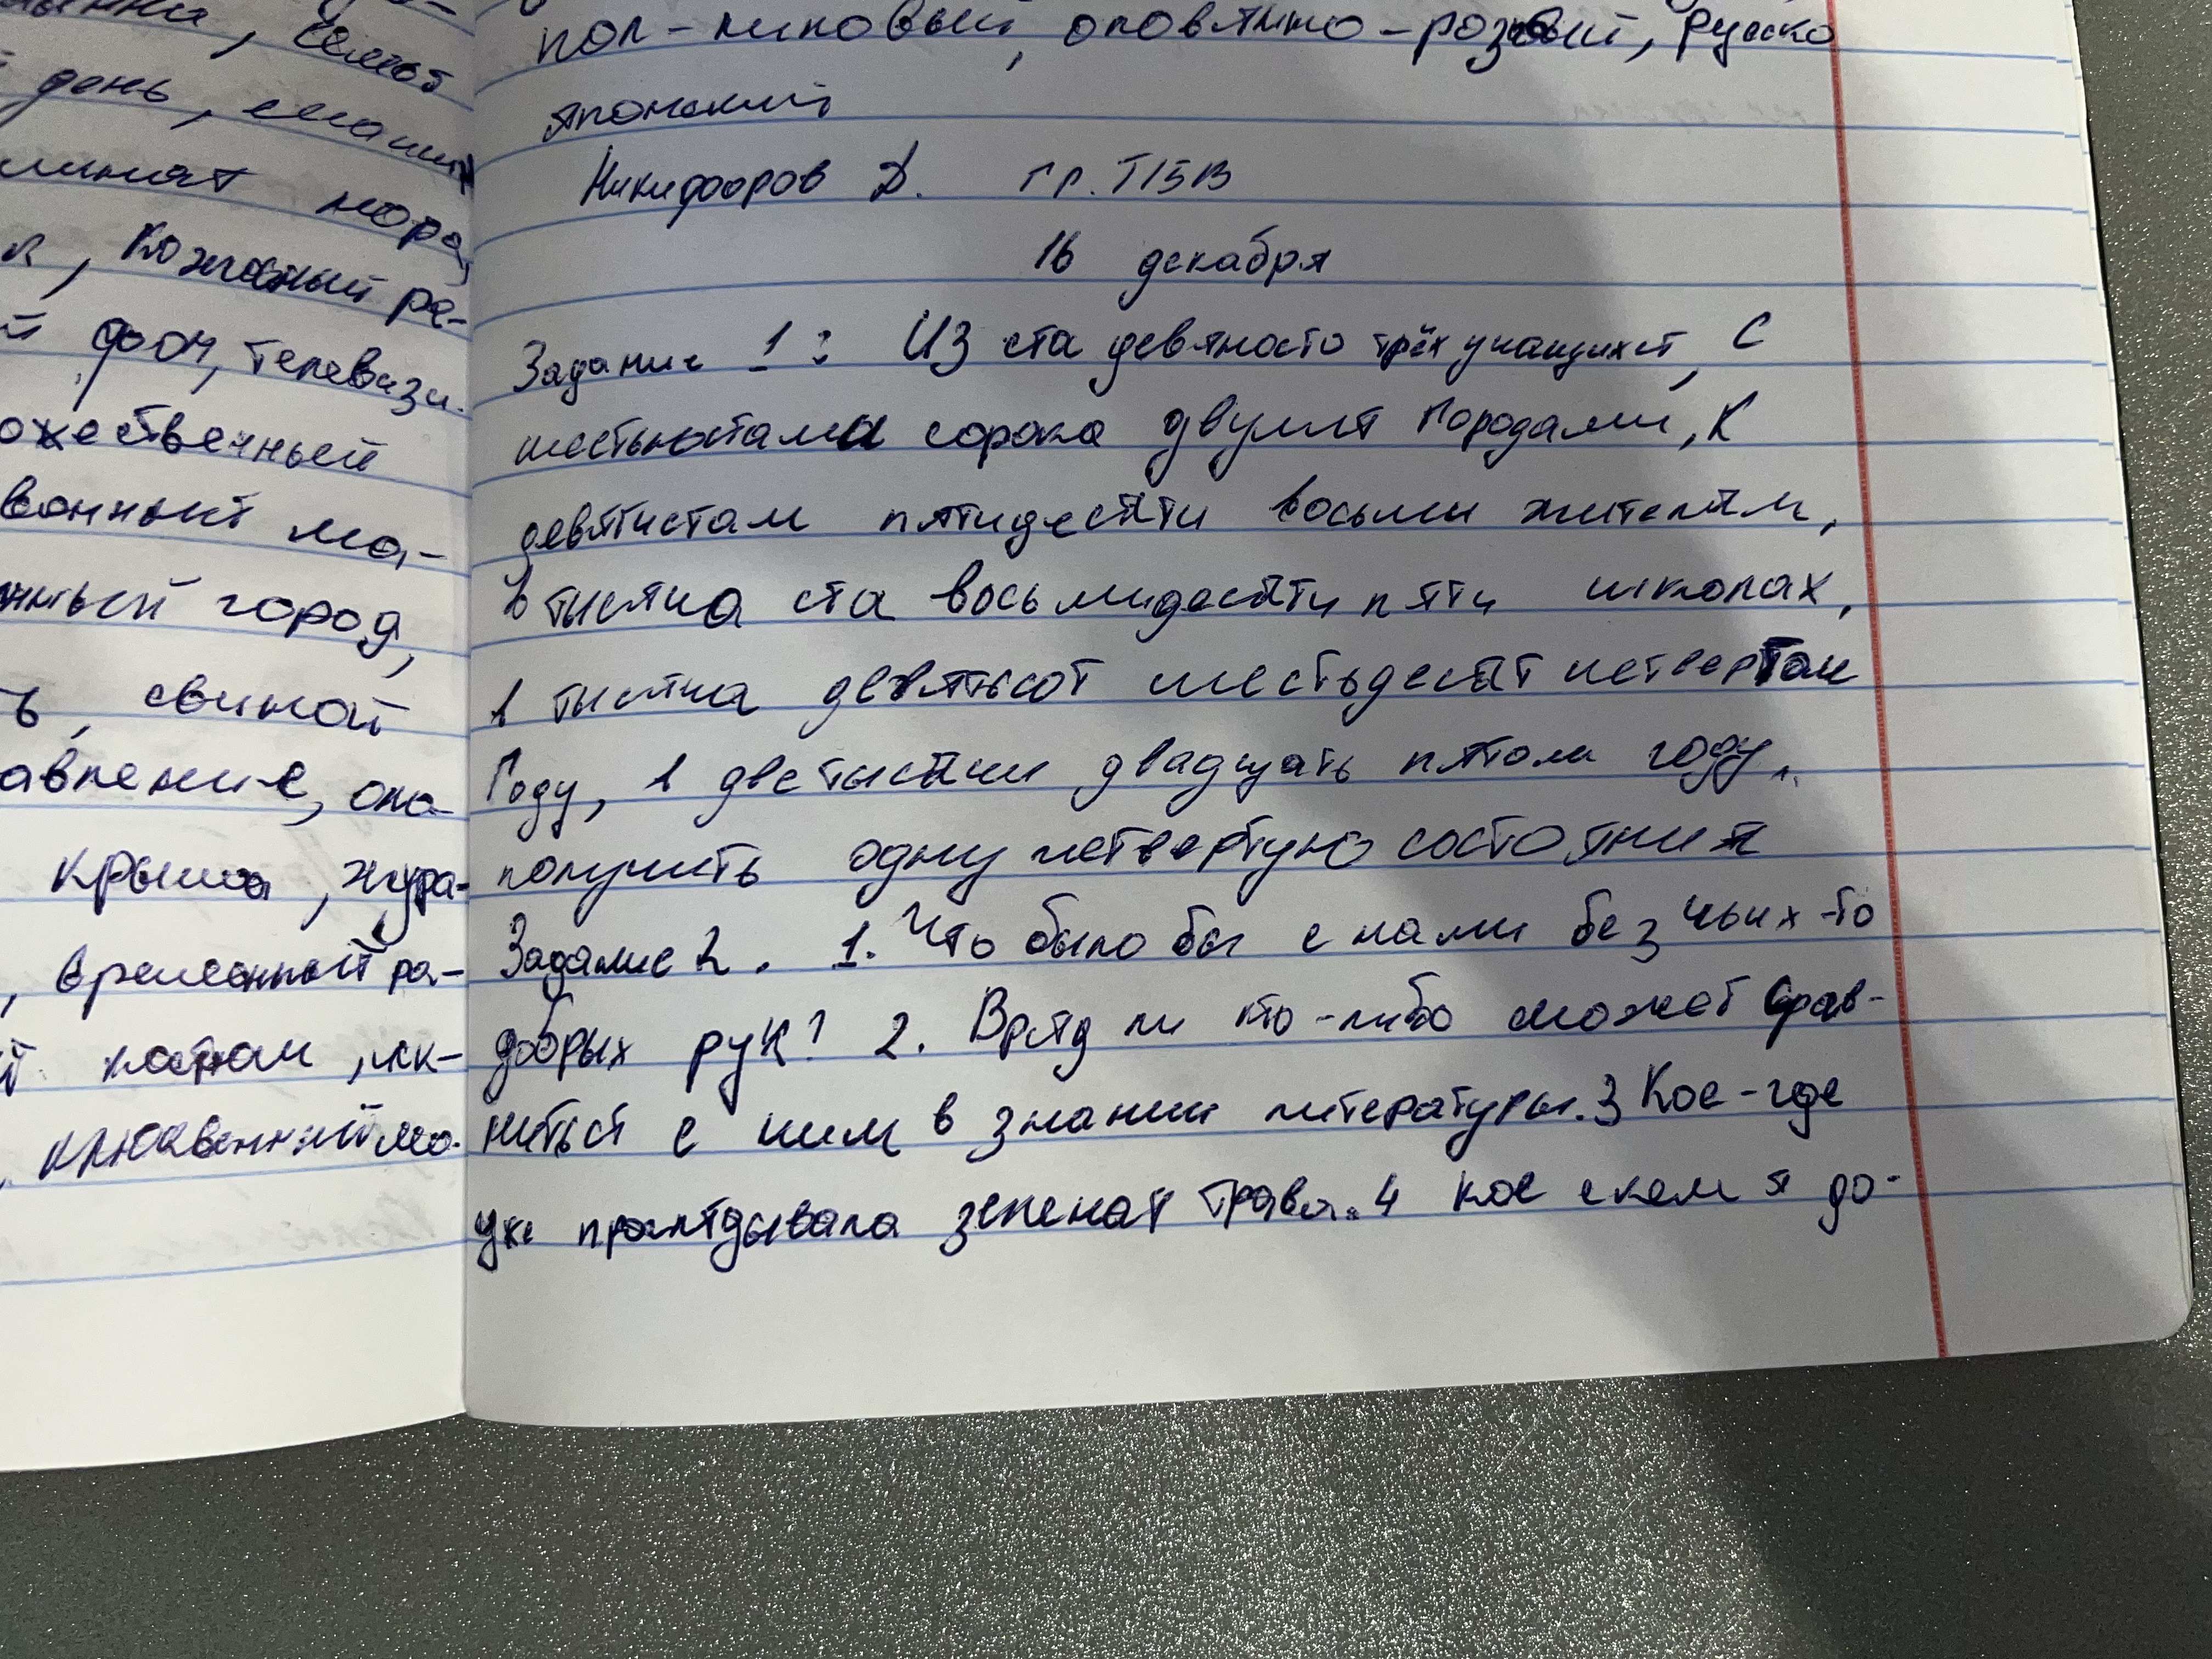 ынки,
день,
минат нора,
к, кожаный ре-
й фон, телевизи-
ожественный
ванный ма-
нный город,
ь, свиной
авление, оло-
крыша, жура-
, временный ра-
й
, клюквенный мо-
пол-лиловый, оловянно-розовый, русско
японский
Никифоров Д. гр. Т15В
16 декабря
Задание 1: Из ста девяносто трёх учащихся, с
шестьюстами сорока двумя городами, к
девятистам пятидесяти восьми жителям,
в тысяча ста восьмидесяти пяти школах,
в тысяча девятьсот шестьдесят четвертом
году, в две тысячи двадцать пятом году,
получить одну четвертую состояния
Задание 2. 1. Что было бы с нами без чьих-то
добрых рук? 2. Вряд ли кто-либо может срав-
ниться с ним в знании литературы. 3 Кое-где
уже проглядывала зеленая трава. 4 кое с кем я до-